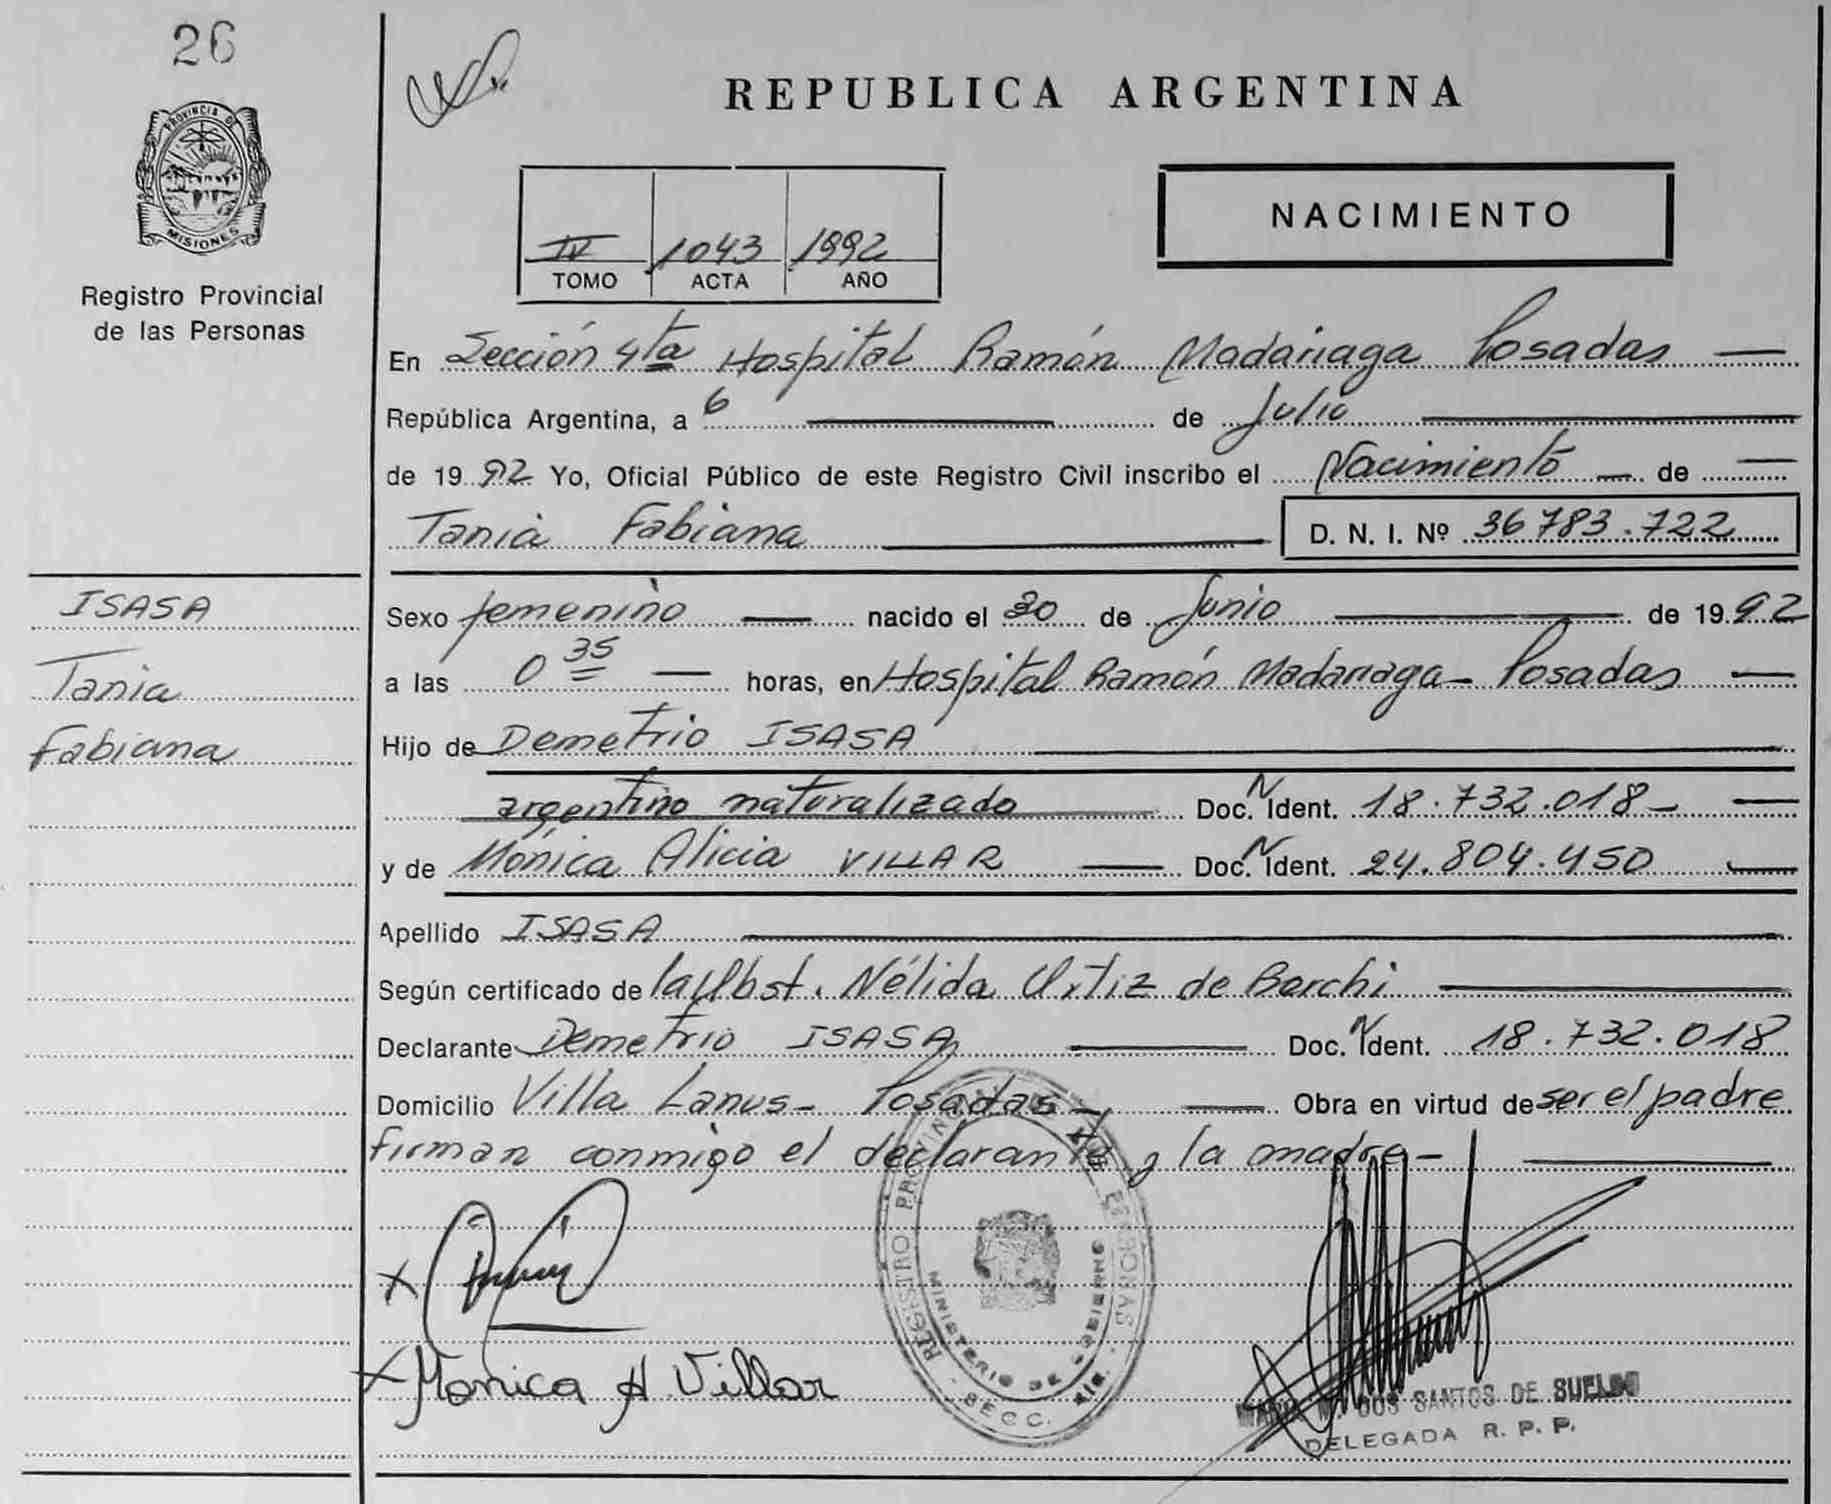 26
PROVINCIA D
MISIONES
Registro Provincial
de las Personas
REPUBLICA ARGENTINA
IV 1043 1992
TOMO ACTA AÑO
NACIMIENTO
En Sección 4ta Hospital Ramón Madariaga Posadas
República Argentina, a 6 de Julio
de 1992 Yo, Oficial Público de este Registro Civil inscribo el Nacimiento de
Tania Fabiana D. N. I. Nº 36783.722
ISASA
Tania
Fabiana
Sexo femenino nacido el 30 de Junio de 1992
a las 0 35 horas, en Hospital Ramón Madariaga - Posadas
Hijo de Demetrio ISASA
argentino naturalizado Doc. N Ident. 18.732.018
y de Mónica Alicia VILLAR Doc. N Ident. 24.804.450
Apellido ISASA
Según certificado de la Obst. Nélida Ortiz de Barchi
Declarante Demetrio ISASA Doc. N Ident. 18.732.018
Domicilio Villa Lanus - Posadas - Obra en virtud de ser el padre
firman conmigo el declarante y la madre -
REGISTRO PROVINCIAL DE LAS PERSONAS
MINISTERIO DE GOBIERNO
SECC. 4ta.
x
x Monica A Villar
M. DOS SANTOS DE SUELDO
DELEGADA R. P. P.